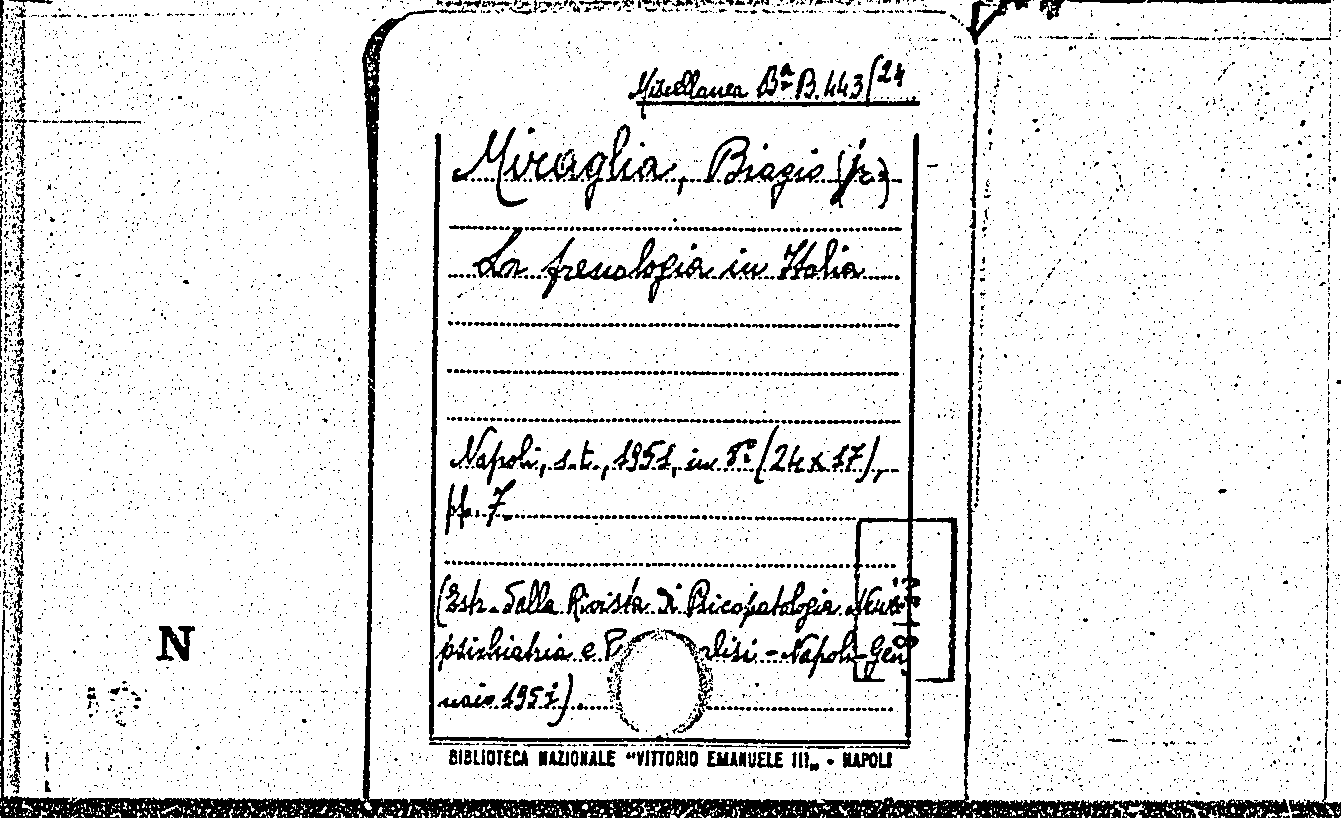 Miscellanea Bª B. 443/24
Miraglia, Biagio (jr.)
La frenologia in Italia
Napoli, s.t., 1951, in 8º (24 x 17),
pp. 7.
(Estr. dalla Rivista Di Psicopatologia Neuro
psichiatria e P lisi - Napoli - Gen
naio 1951).
N
BIBLIOTECA NAZIONALE "VITTORIO EMANUELE III" - NAPOLI